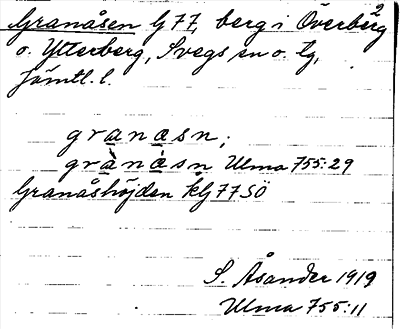 Granåsen G 77, berg i Överberg
o. Ytterberg, Svegs sn o. tg,
Jämtl. l.
granasn;
grànàsn Ulma 755:29
Granåshöjden kG 77 SÖ
S. Åsander 1919
Ulma 755:11